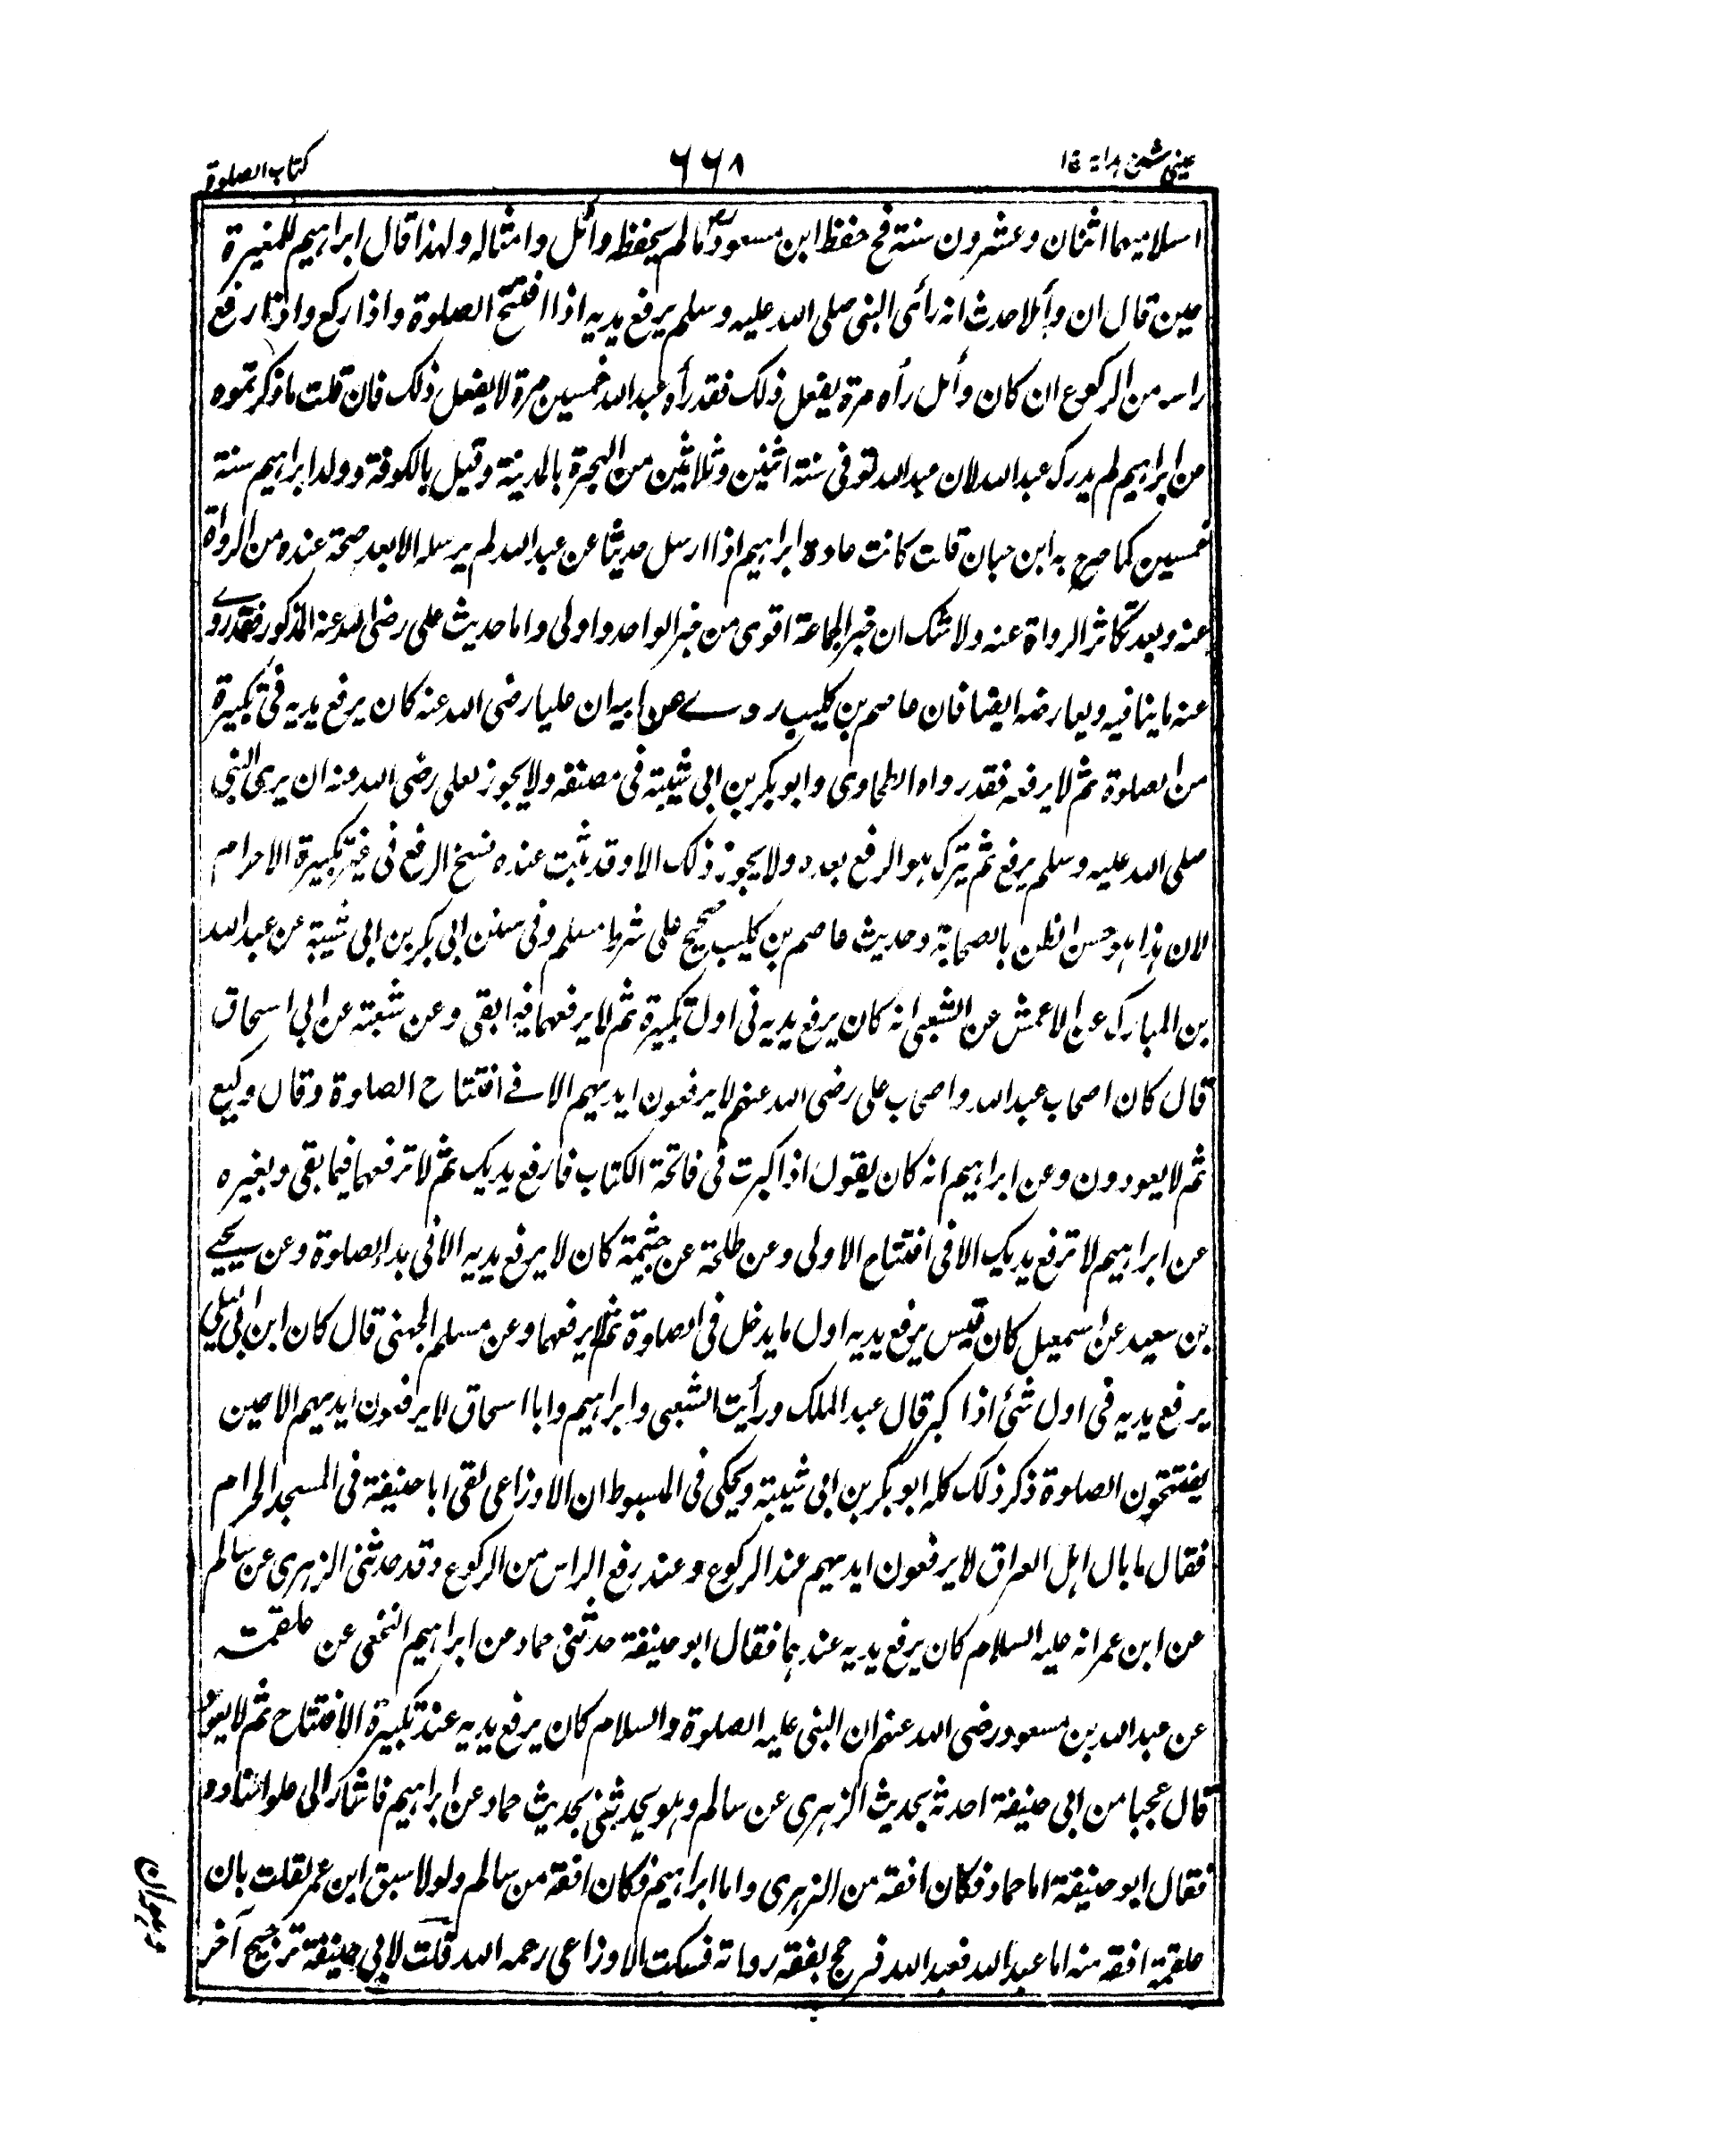 عینی شرح ہدایہ ج ا
٦٦٨
کتاب الصلوة
اسلامیهما اثنان وعشرون سنة فح حفظ ابن مسعود مالم یحفظه وائل وامثاله ولهذا قال ابراہیم للمغیرة
حین قال ان وائلا حدث انه رأی النبی صلی الله علیه وسلم یرفع یدیه اذا افتتح الصلوة واذا رکع واذا رفع
راسه من الرکوع ان کان وائل رأه مرة یفعل ذلک فقد رأه عبد الله خمسین مرة لا یفعل ذلک فان قلت ما ذکرتموه
من ابراہیم لم یدرک عبد الله لان عبد الله توفی سنة اثنین وثلاثین من الهجرة بالمدینة وقیل بالکوفة وولد ابراہیم سنة
خمسین کما صرح به ابن حبان قلت کانت عادة ابراہیم اذا ارسل حدیثا عن عبد الله لم یرسله الا بعد صحة عنده من الرواة
عنه وبعد تکاثر الرواة عنه ولا شک ان خبر الجماعة اقوی من خبر الواحد واولی واما حدیث علی رضی الله عنه المذکور فقد روے
عنه ما ینافیه ویعارضه ایضا فان عاصم بن کلیب روے عن ابیه ان علیا رضی الله عنه کان یرفع یدیه فی تکبیرة
من الصلوة ثم لا یرفعه فقد رواه الطحاوی وابو بکر بن ابی شیبة فی مصنفه ولا یجوز لعلی رضی الله عنه ان یری النبی
صلی الله علیه وسلم یرفع ثم یترک ہو الرفع بعده ولا یجوز ذلک الا وقد ثبت عنده نسخ الرفع فی غیر تکبیرة الاحرام
لان ہذا ہو حسن الظن بالصحابة وحدیث عاصم بن کلیب صحیح علی شرط مسلم وفی سنن ابی بکر بن ابی شیبة عن عبد الله
بن المبارک عن الاعمش عن الشعبی انه کان یرفع یدیه فی اول تکبیرة ثم لا یرفعهما فیما بقی وعن شعبة عن ابی اسحاق
قال کان اصحاب عبد الله واصحاب علی رضی الله عنهم لا یرفعون ایدیہم الا فے افتتاح الصلوة وقال وکیع
ثم لا یعودون وعن ابراہیم انه کان یقول اذا کبرت فی فاتحة الکتاب فارفع یدیک ثم لا ترفعهما فیما بقی وبغیره
عن ابراہیم لا ترفع یدیک الا فی افتتاح الاولی وعن طلحة عن خثیمة کان لا یرفع یدیه الا فی بدء الصلوة وعن یحیے
بن سعید عن اسمعیل کان قیس یرفع یدیه اول ما یدخل فی الصلوة ثم لا یرفعهما وعن مسلم الجهنی قال کان ابن ابی لیلی
یرفع یدیه فی اول شئ اذا کبر قال عبد الملک ورأیت الشعبی وابراہیم وابا اسحاق لا یرفعون ایدیہم الا حین
یفتتحون الصلوة ذکر ذلک کله ابو بکر بن ابی شیبة ویحکی فی المبسوط ان الاوزاعی لقی ابا حنیفة فی المسجد الحرام
فقال ما بال اہل العراق لا یرفعون ایدیہم عند الرکوع وعند رفع الراس من الرکوع وقد حدثنی الزہری عن سالم
عن ابن عمر انه علیه السلام کان یرفع یدیه عندہما فقال ابو حنیفة حدثنی حماد عن ابراہیم النخعی عن علقمة
عن عبد الله بن مسعود رضی الله عنهم ان النبی علیه الصلوة والسلام کان یرفع یدیه عند تکبیرة الافتتاح ثم لا یعود
قال عجبا من ابی حنیفة احدثه بحدیث الزہری عن سالم وہو یحدثنی بحدیث حماد عن ابراہیم فاشار الی علو اسناده
فقال ابو حنیفة اما حماد فکان افقه من الزہری واما ابراہیم فکان افقه من سالم ولولا سبق ابن عمر لقلت بان
علقمة افقه منه اما عبد الله فعبد الله فرجح بفقه رواته فسکت الاوزاعی رحمه الله قلت لابی حنیفة ترجیح آخر